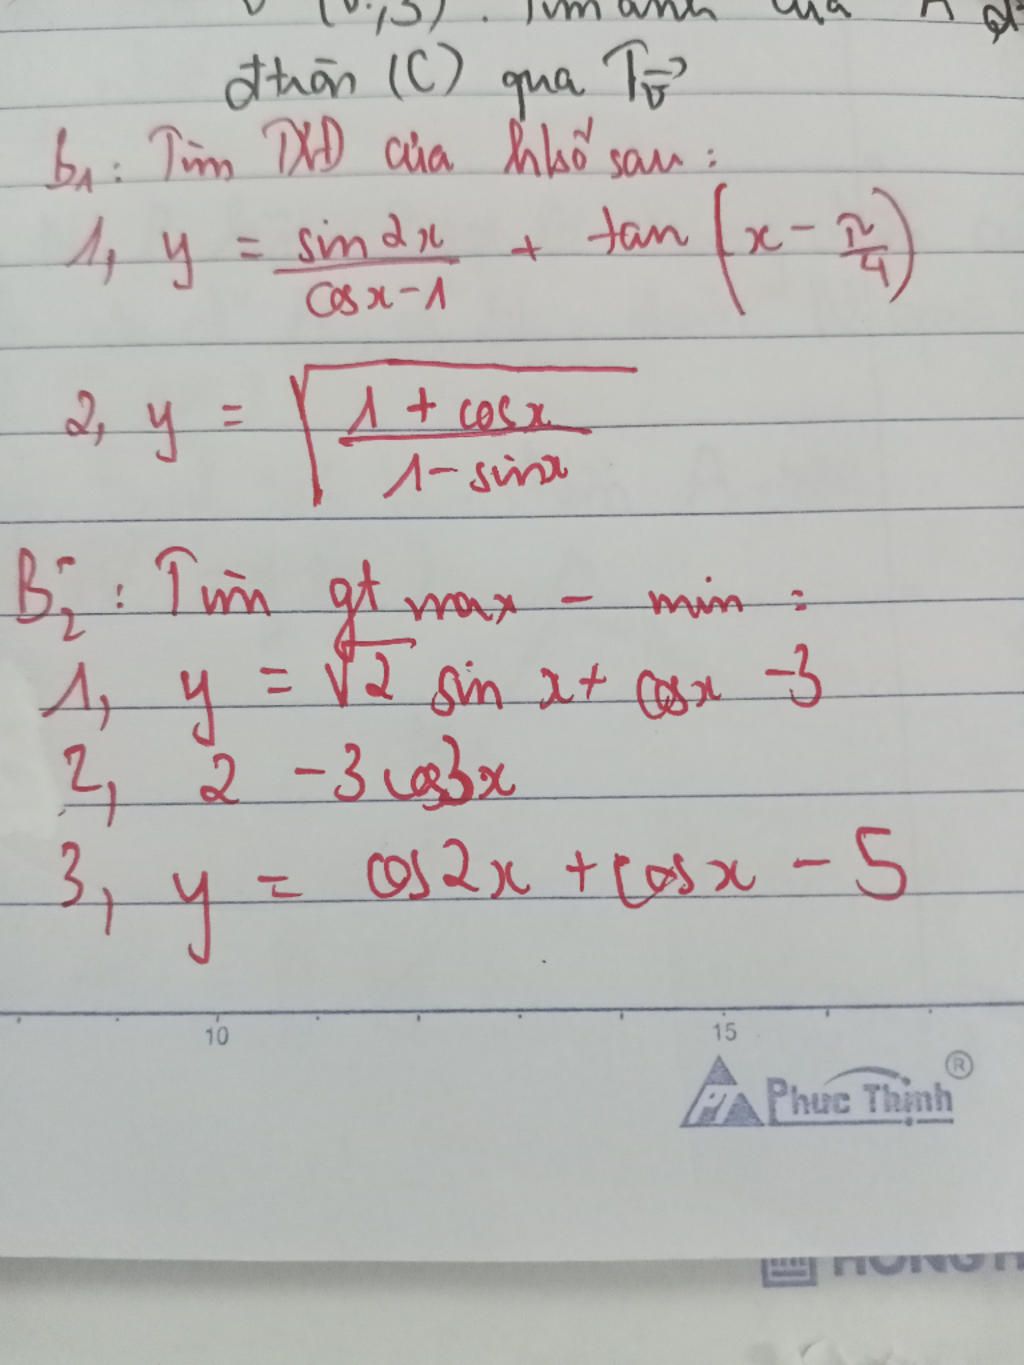 đthẳn (C) qua T_v⃗
b1: Tìm TXĐ của hksố sau:
1, y = sin2x / cosx-1 + tan (x - π/4)
2, y = √(1 + cosx / 1 - sinx)
B2: Tìm gt max - min:
1, y = √2 sin x + cosx - 3
2, 2 - 3cos3x
3, y = cos2x + cosx - 5
10 15
Phuc Thịnh ®